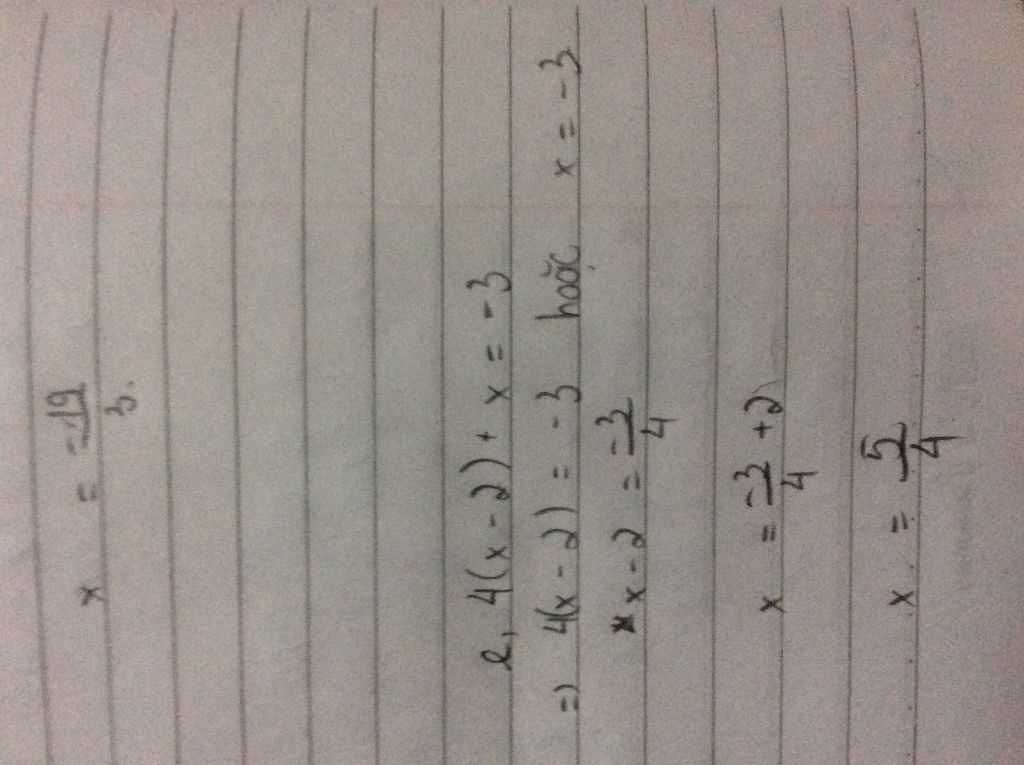 x = -19/3.
e, 4(x - 2) + x = -3
=) 4(x - 2) = -3 hoặc x = -3
x - 2 = -3/4
x = -3/4 + 2
x = 5/4